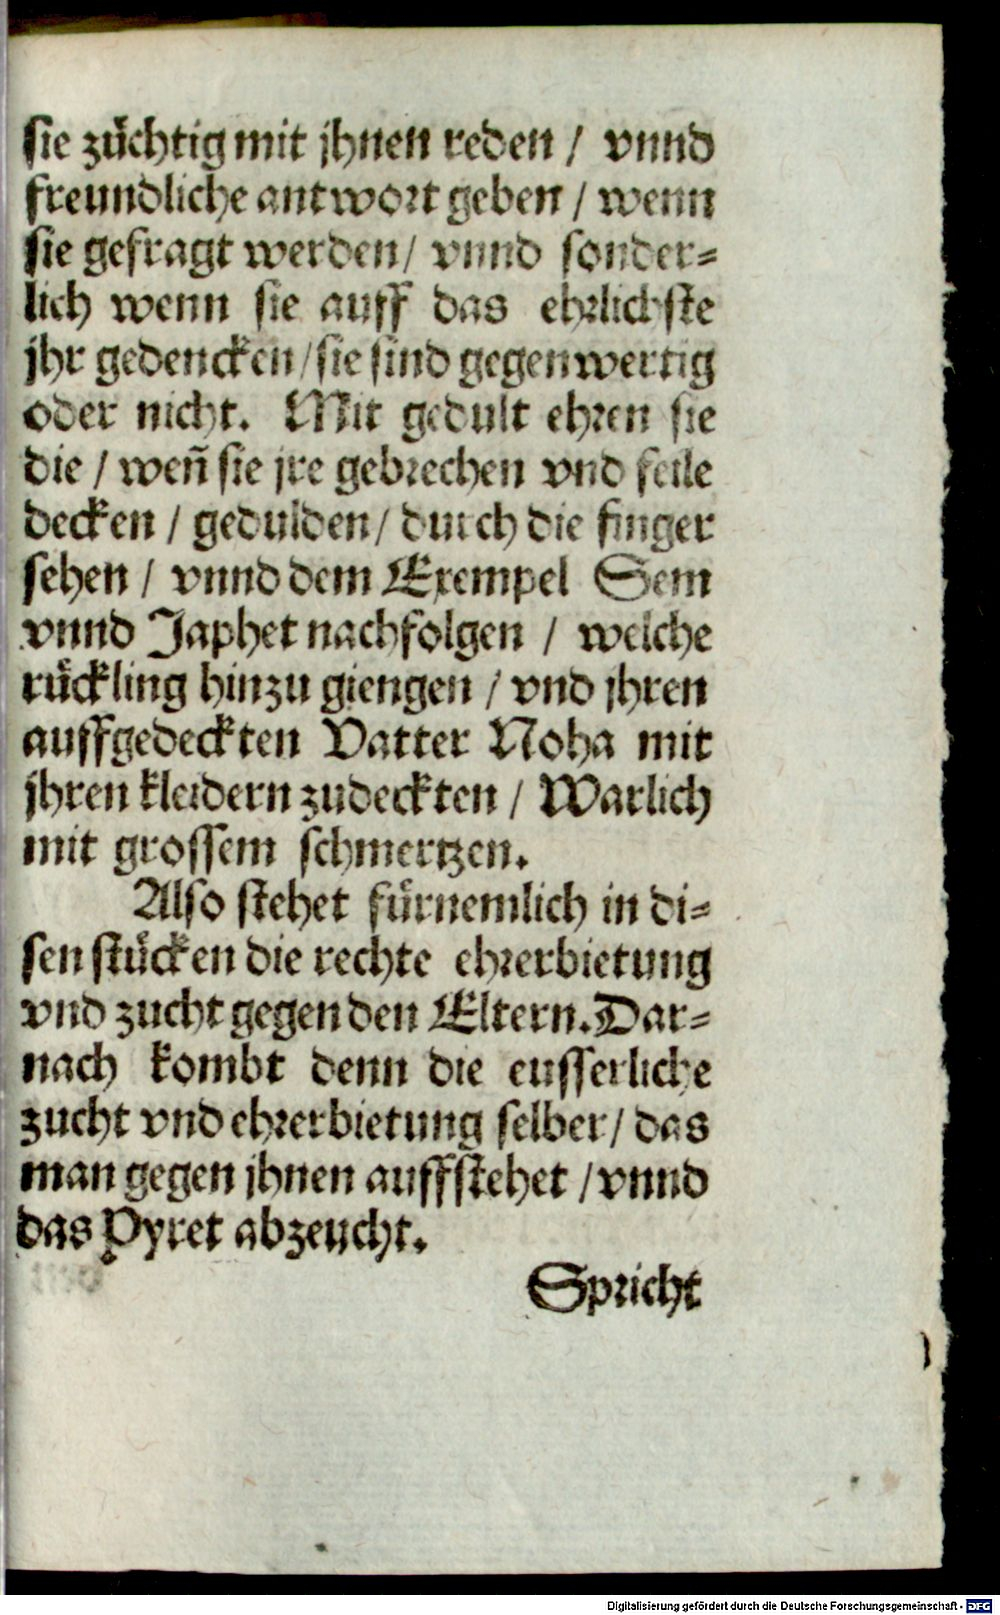 sie zuͤchtig mit jhnen reden / vnnd
freundliche antwort geben / wenn
sie gefragt werden / vnnd sonder⸗
lich wenn sie auff das ehrlichste
jhr gedencken / sie sind gegenwertig
oder nicht. Mit gedult ehren sie
die / wen̄ sie jre gebrechen vnd feile
decken / gedulden / durch die finger
sehen / vnnd dem Exempel Sem
vnnd Japhet nachfolgen / welche
ruͤckling hinzu giengen / vnd jhren
auffgedeckten Vatter Noha mit
jhren kleidern zudeckten / Warlich
mit grossem schmertzen.
Also stehet fuͤrnemlich in di⸗
sen stuͤcken die rechte ehrerbietung
vnd zucht gegen den Eltern. Dar⸗
nach kombt denn die eusserliche
zucht vnd ehrerbietung selber / das
man gegen jhnen auffstehet / vnnd
das Pyret abzeucht.
Spricht
Digitalisierung gefördert durch die Deutsche Forschungsgemeinschaft - DFG